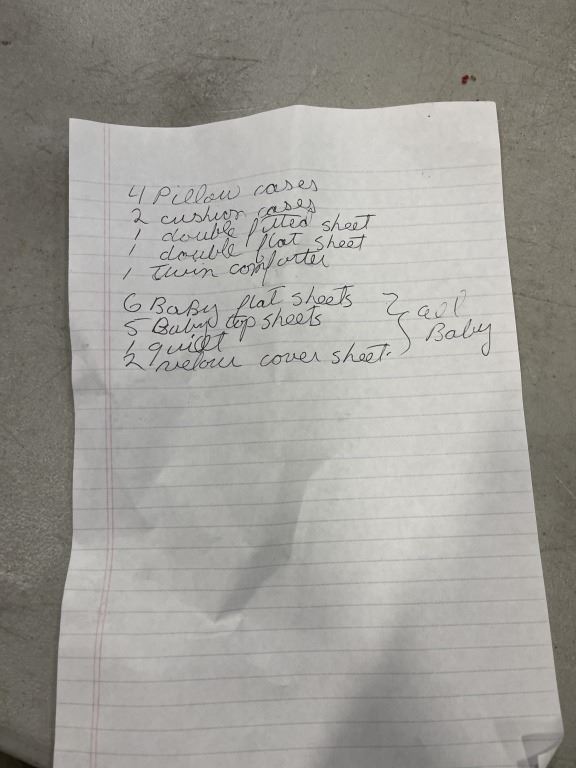 4 Pillow cases
2 cushion cases
1 double fitted sheet
1 double flat sheet
1 twin comforter
6 Baby flat sheets
5 Baby top sheets
1 quilt
2 velour cover sheet.
all
Baby